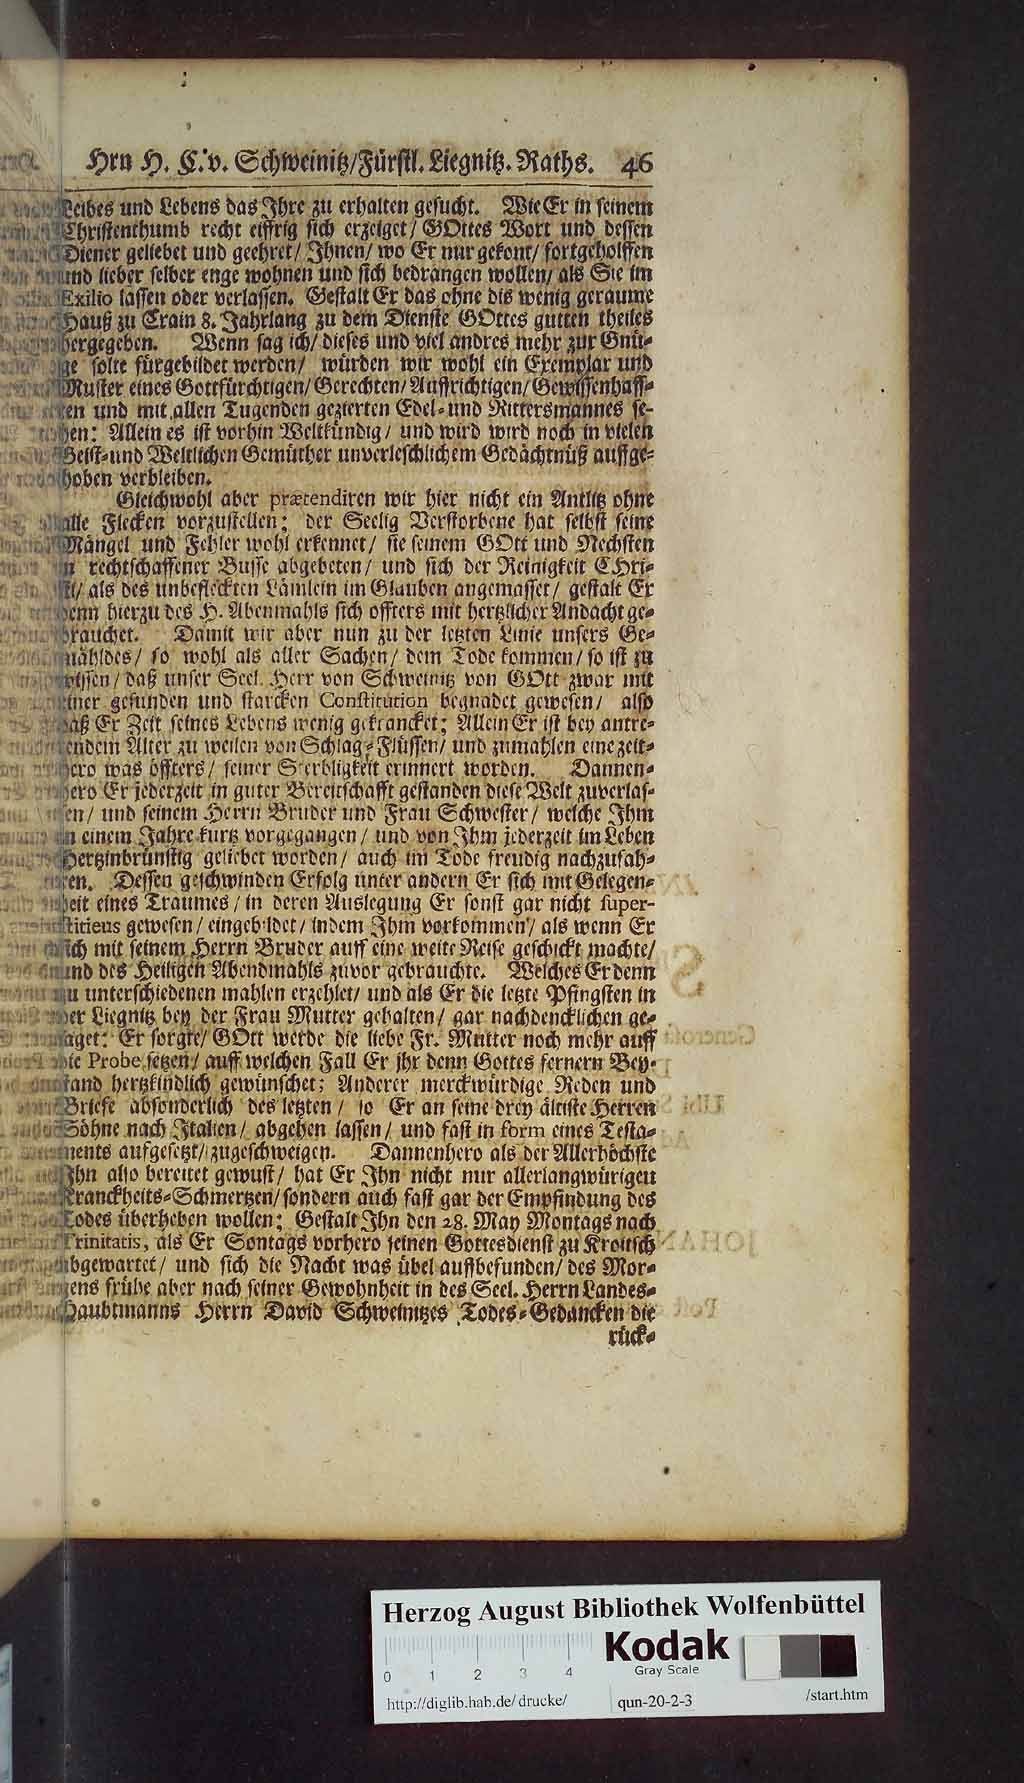 Hrn H. C. v. Schweinitz/Fürstl. Liegnitz. Raths. 46
Leibes und Lebens das Ihre zu erhalten gesucht. Wie Er in seinem
Christenthumb recht eiffrig sich erzeiget/ GOttes Wort und dessen
Diener geliebet und geehret/ Ihnen/ wo Er nur gekont/ fortgeholffen
und lieber selber enge wohnen und sich bedrangen wollen/ als Sie im
Exilio lassen oder verlassen. Gestalt Er das ohne dis wenig geraume
Hauß zu Crain 8. Jahrlang zu dem Dienste GOttes gutten theiles
hergegeben. Wenn sag ich/ dieses und viel andres mehr zur Gnü-
ge solte fürgebildet werden/ würden wir wohl ein Exemplar und
Muster eines Gottfürchtigen/ Gerechten/ Auffrichtigen/ Gewissenhaff-
ten und mit allen Tugenden gezierten Edel- und Rittersmannes se-
hen: Allein es ist vorhin Weltkündig/ und wird wird noch in vielen
Geist- und Weltlichen Gemüther unverleschlichem Gedächtnüß auffge-
hoben verbleiben.
Gleichwohl aber prætendiren wir hier nicht ein Antlitz ohne
alle Flecken vorzustellen; der Seelig Verstorbene hat selbst seine
Mängel und Fehler wohl erkennet/ sie seinem GOtt und Nechsten
in rechtschaffener Busse abgebeten/ und sich der Reinigkeit CHri-
sti/ als des unbefleckten Lämlein im Glauben angemasset/ gestalt Er
denn hierzu des H. Abenmahls sich offters mit hertzlicher Andacht ge-
brauchet. Damit wir aber nun zu der letzten Linie unsers Ge-
mähldes/ so wohl als aller Sachen/ dem Tode kommen/ so ist zu
wissen/ daß unser Seel. Herr von Schweinitz von GOtt zwar mit
einer gesunden und starcken Constitution begnadet gewesen/ also
daß Er Zeit seines Lebens wenig gekrancket; Allein Er ist bey antre-
tendem Alter zu weilen von Schlag-Flüssen/ und zumahlen eine zeit-
hero was öffters/ seiner Sterbligkeit erinnert worden. Dannen-
hero Er jederzeit in guter Bereitschafft gestanden diese Welt zuverlas-
sen/ und seinem Herrn Bruder und Frau Schwester/ welche Ihm
in einem Jahre kurtz vorgegangen/ und von Ihm jederzeit im Leben
Hertzinbrünstig geliebet worden/ auch im Tode freudig nachzufah-
ren. Dessen geschwinden Erfolg unter andern Er sich mit Gelegen-
heit eines Traumes/ in deren Auslegung Er sonst gar nicht super-
stitieus gewesen/ eingebildet/ indem Ihm vorkommen/ als wenn Er
sich mit seinem Herrn Bruder auff eine weite Reise geschickt machte/
und des Heiligen Abendmahls zuvor gebrauchte. Welches Er denn
zu unterschiedenen mahlen erzehlet/ und als Er die letzte Pfingsten in
der Liegnitz bey der Frau Mutter gehalten/ gar nachdencklichen ge-
saget: Er sorgte/ GOtt werde die liebe Fr. Mutter noch mehr auff
die Probe setzen/ auff welchen Fall Er ihr denn Gottes fernern Bey-
stand hertzkindlich gewünschet; Anderer merckwürdige Reden und
Briefe absonderlich des letzten/ so Er an seine drey ältiste Herren
Söhne nach Italien/ abgehen lassen/ und fast in form eines Testa-
ments aufgesetzt/ zugeschweigen. Dannenhero als der Allerhöchste
Ihn also bereitet gewust/ hat Er Ihn nicht nur allerlangwürigen
Kranckheits-Schmertzen/ sondern auch fast gar der Empfindung des
Todes überheben wollen; Gestalt Ihn den 28. May Montags nach
Trinitatis, als Er Sontags vorhero seinen Gottesdienst zu Kroitsch
abgewartet/ und sich die Nacht was übel auffbefunden/ des Mor-
gens frühe aber nach seiner Gewohnheit in des Seel. Herrn Landes-
Haubtmanns Herrn David Schweinitzes Todes-Gedancken die
rück-
Herzog August Bibliothek Wolfenbüttel
Kodak
Gray Scale
0 1 2 3 4
http://diglib.hab.de/drucke/ qun-20-2-3 /start.htm